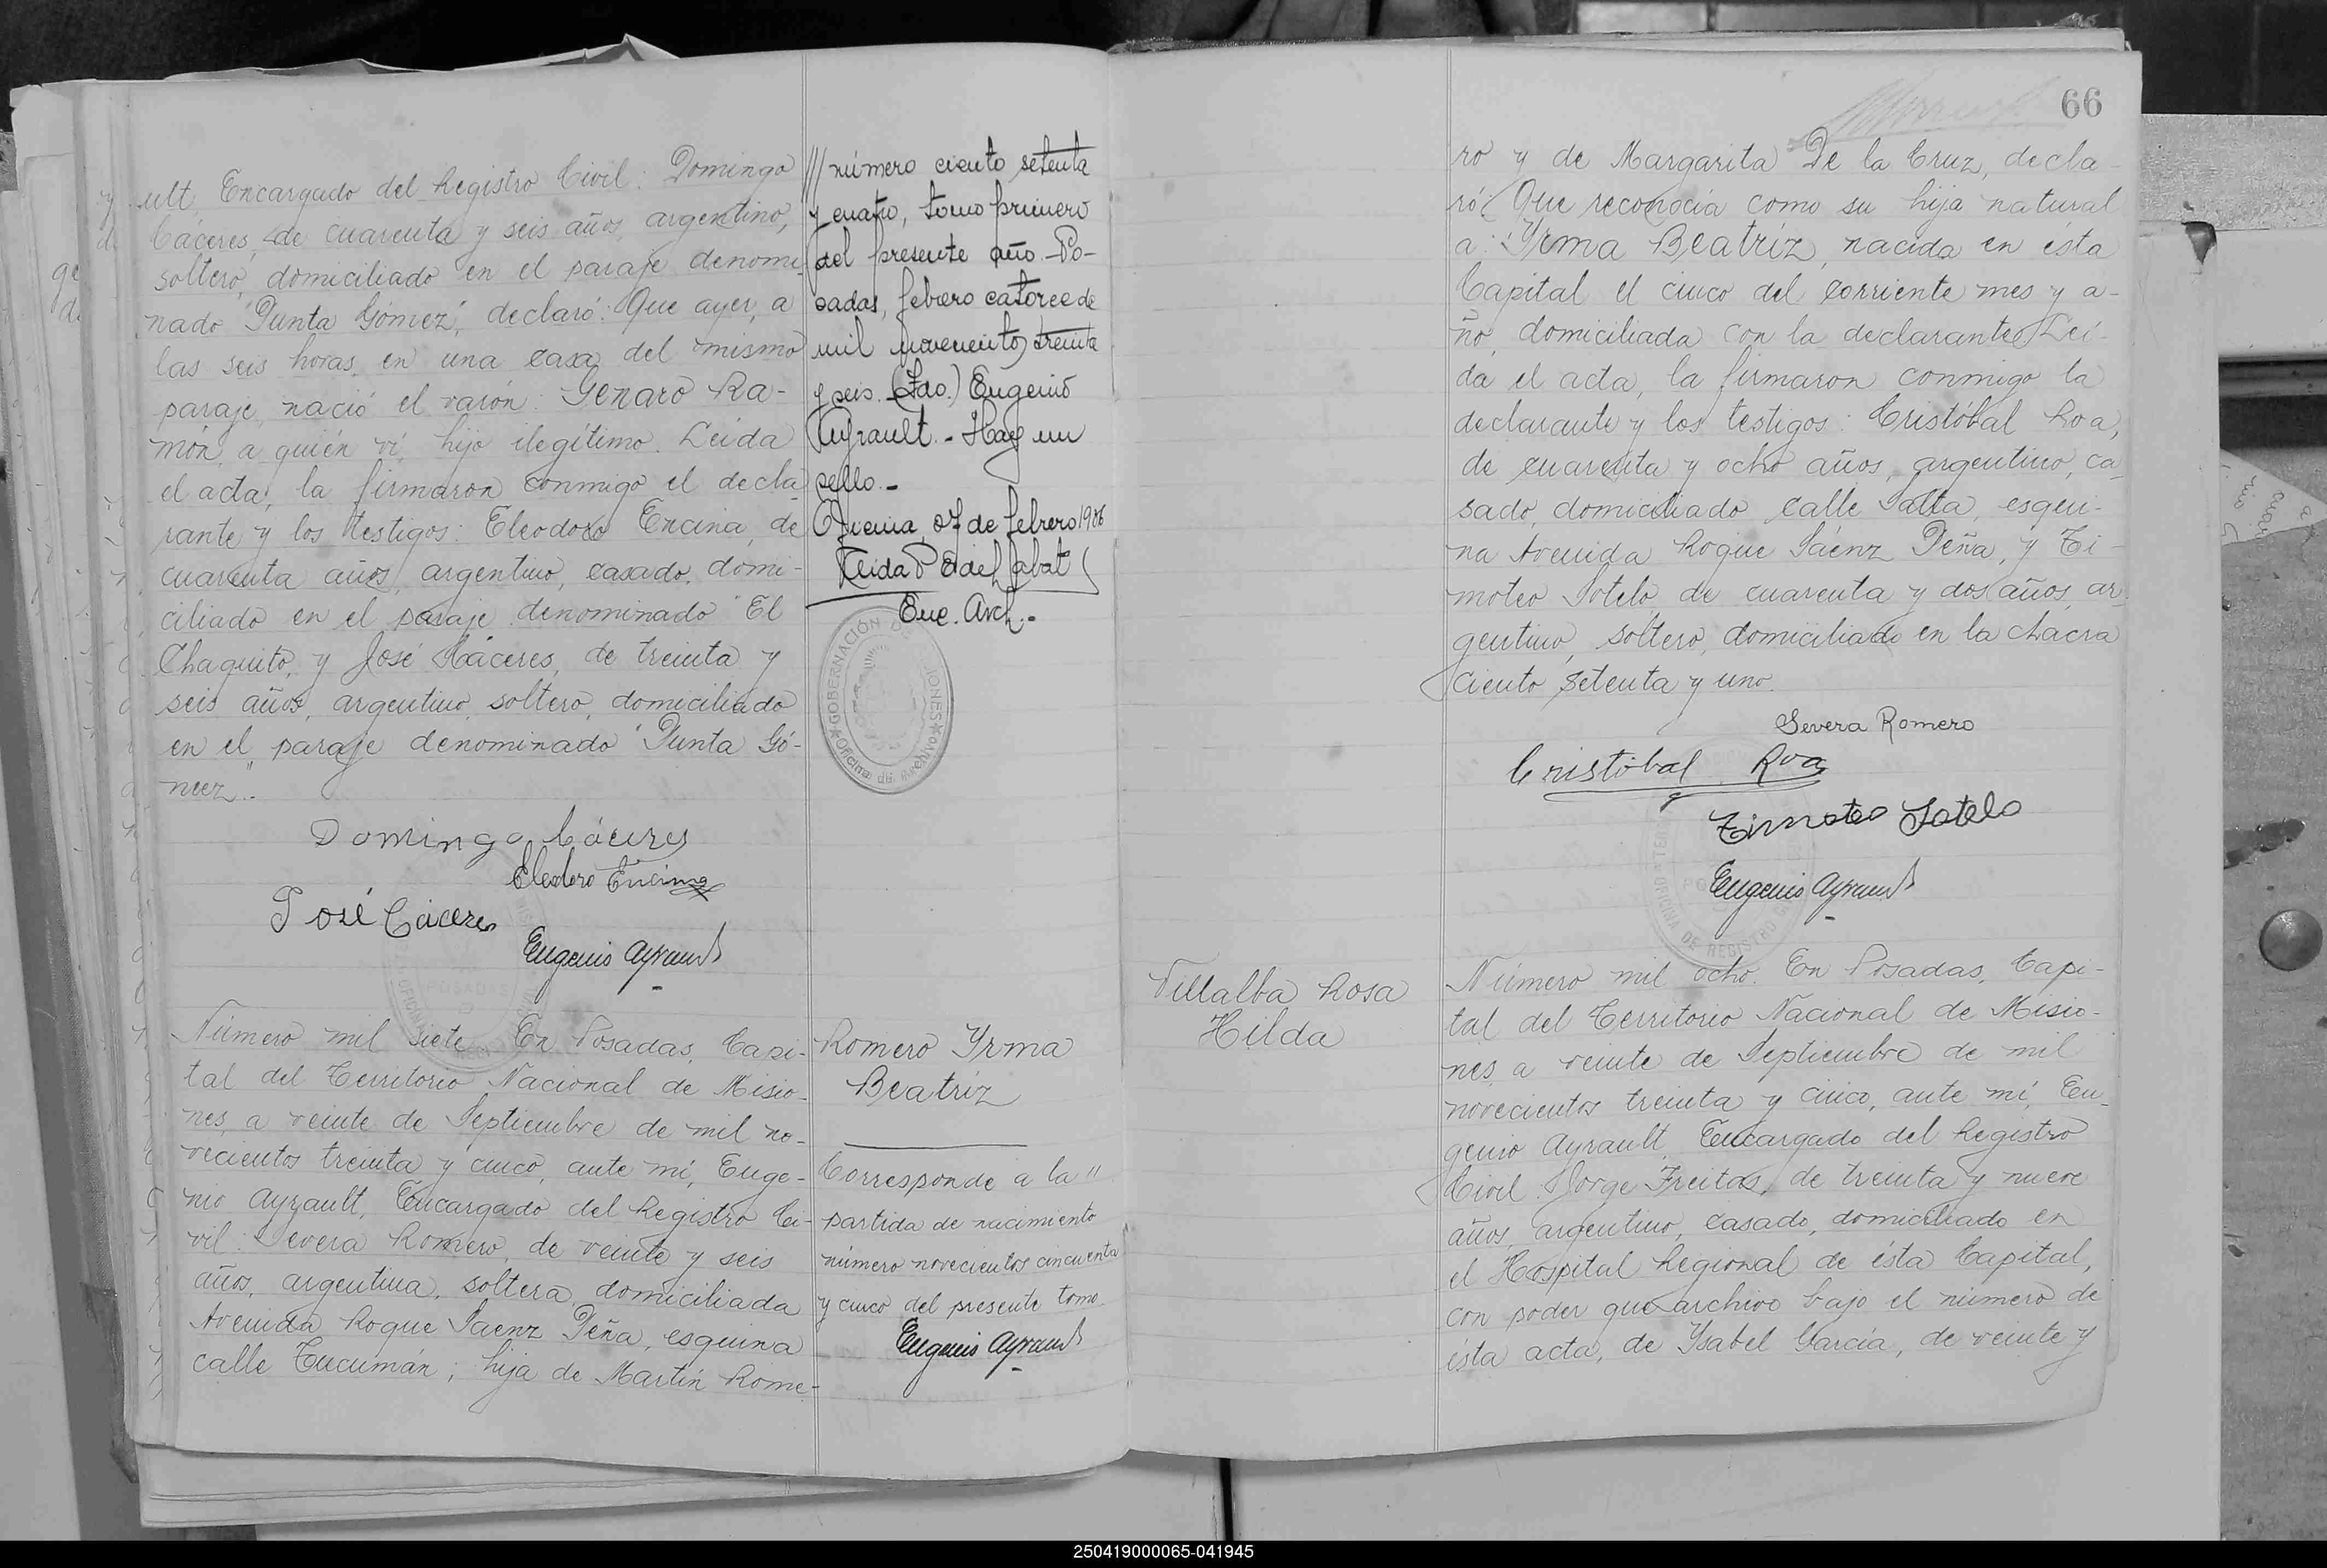 ult, Encargado del Registro Civil: Domingo
Cáceres, de cuarenta y seis años, argentino,
soltero, domiciliado en el paraje denomi
nado "Punta Gómez", declaró: Que ayer, a
las seis horas, en una casa del mismo
paraje, nació el varón: Genaro Ra-
món, a quién ví, hijo ilegítimo. Leida
el acta, la firmaron conmigo el decla
rante y los testigos: Eleodoro Encina, de
cuarenta años, argentino, casado, domi-
ciliado en el paraje denominado "El
Chaquito", y José Cáceres, de treinta y
seis años, argentino, soltero, domiciliado
en el paraje denominado "Punta Gó-
mez".
Domingo Cáceres
Eleodoro Encina
José Cáceres
Eugenio Ayrault
/// número ciento setenta
y cuatro, tomo primero
del presente año.-Po-
sadas, febrero catorce de
mil novecientos treinta
y seis.-(Fdo.) Eugenio
Ayrault.- Hay un
sello.-
Oficina, 07 de febrero 1986
Enc. Arch.-
GOBERNACIÓN
Oficina de Archivo
Número mil siete. En Posadas, Capi-
tal del Territorio Nacional de Misio-
nes, a veinte de Septiembre de mil no-
vecientos treinta y cinco, ante mí, Euge-
nio Ayrault, Encargado del Registro Ci-
vil: Severa Romero, de veinte y seis
años, argentina, soltera, domiciliada
Avenida Roque Saenz Peña, esquina
calle Tucumán; hija de Martín Rome-
Romero Yrma
Beatriz
Corresponde a la "
partida de nacimiento
número novecientos cincuenta
y cinco del presente tomo.
Eugenio Ayrault
66
ro y de Margarita De la Cruz, decla-
ró: Que reconocía como su hija natural
a: Yrma Beatríz, nacida en ésta
Capital el cinco del corriente mes y a-
ño, domiciliada con la declarante. Leí-
da el acta, la firmaron conmigo la
declarante y los testigos: Cristóbal Roa,
de cuarenta y ocho años, argentino, ca
sado, domiciliado calle Salta, esqui-
na Avenida Roque Sáenz Peña, y Ti-
moteo Sotelo, de cuarenta y dos años, ar
gentino, soltero, domiciliado en la chacra
ciento setenta y uno.
Severa Romero
Cristóbal Roa
Timoteo Sotelo
Eugenio Ayrault
Villalba Rosa
Hilda
Número mil ocho. En Posadas, Capi-
tal del Territorio Nacional de Misio-
nes, a veinte de Septiembre de mil
novecientos treinta y cinco, ante mí, Eu-
genio Ayrault, Encargado del Registro
Civil: Jorge Freitas, de treinta y nueve
años, argentino, casado, domiciliado en
el Hospital Regional de ésta Capital,
con poder que archivo bajo el número de
ésta acta, de Ysabel García, de veinte y
250419000065-041945